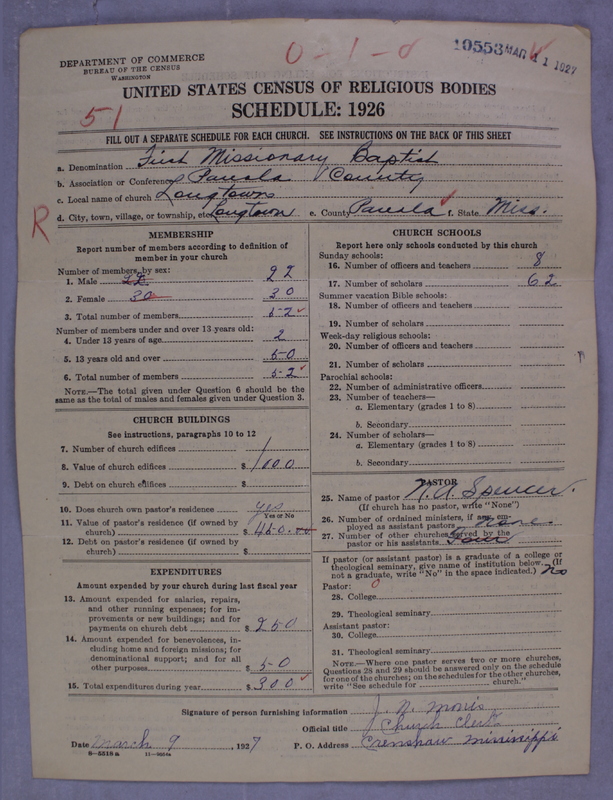 DEPARTMENT OF COMMERCE
BUREAU OF THE CENSUS
WASHINGTON
0-1-0
10553 MAR 11 1927
UNITED STATES CENSUS OF RELIGIOUS BODIES
SCHEDULE: 1926
51
FILL OUT A SEPARATE SCHEDULE FOR EACH CHURCH. SEE INSTRUCTIONS ON THE BACK OF THIS SHEET
a. Denomination First Missionary Baptist
b. Association or Conference Panola County
c. Local name of church Longtown
d. City, town, village, or township, etc. Longtown e. County Panola f. State Miss.
R
MEMBERSHIP
Report number of members according to definition of
member in your church
Number of members by sex:
1. Male 22 22
2. Female 30 30
3. Total number of members 52
Number of members under and over 13 years old:
4. Under 13 years of age 2
5. 13 years old and over 50
6. Total number of members 52
NOTE.—The total given under Question 6 should be the
same as the total of males and females given under Question 3.
CHURCH BUILDINGS
See instructions, paragraphs 10 to 12
7. Number of church edifices 1
8. Value of church edifices $ 1000
9. Debt on church edifices $
10. Does church own pastor's residence yes
Yes or No
11. Value of pastor's residence (if owned by
church) $ 450.00
12. Debt on pastor's residence (if owned by
church) $
EXPENDITURES
Amount expended by your church during last fiscal year
13. Amount expended for salaries, repairs,
and other running expenses; for im-
provements or new buildings; and for
payments on church debt $ 250
14. Amount expended for benevolences, in-
cluding home and foreign missions; for
denominational support; and for all
other purposes $ 50
15. Total expenditures during year $ 300
CHURCH SCHOOLS
Report here only schools conducted by this church
Sunday schools:
16. Number of officers and teachers 8
17. Number of scholars 62
Summer vacation Bible schools:
18. Number of officers and teachers
19. Number of scholars
Week-day religious schools:
20. Number of officers and teachers
21. Number of scholars
Parochial schools:
22. Number of administrative officers
23. Number of teachers—
a. Elementary (grades 1 to 8)
b. Secondary
24. Number of scholars—
a. Elementary (grades 1 to 8)
b. Secondary
PASTOR
25. Name of pastor N. A. Spencer.
(If church has no pastor, write "None")
26. Number of ordained ministers, if any, em-
ployed as assistant pastors none
27. Number of other churches served by the
pastor or his assistants Four
If pastor (or assistant pastor) is a graduate of a college or
theological seminary, give name of institution below. (If
not a graduate, write "No" in the space indicated.) No
Pastor: 0
28. College
29. Theological seminary
Assistant pastor:
30. College
31. Theological seminary
NOTE.—Where one pastor serves two or more churches,
Questions 28 and 29 should be answered only on the schedule
for one of the churches; on the schedules for the other churches,
write "See schedule for church."
Signature of person furnishing information J. N. Morris
Official title Church Clerk
Date March 9, 1927 P. O. Address Crenshaw Mississippi
8-5518 a